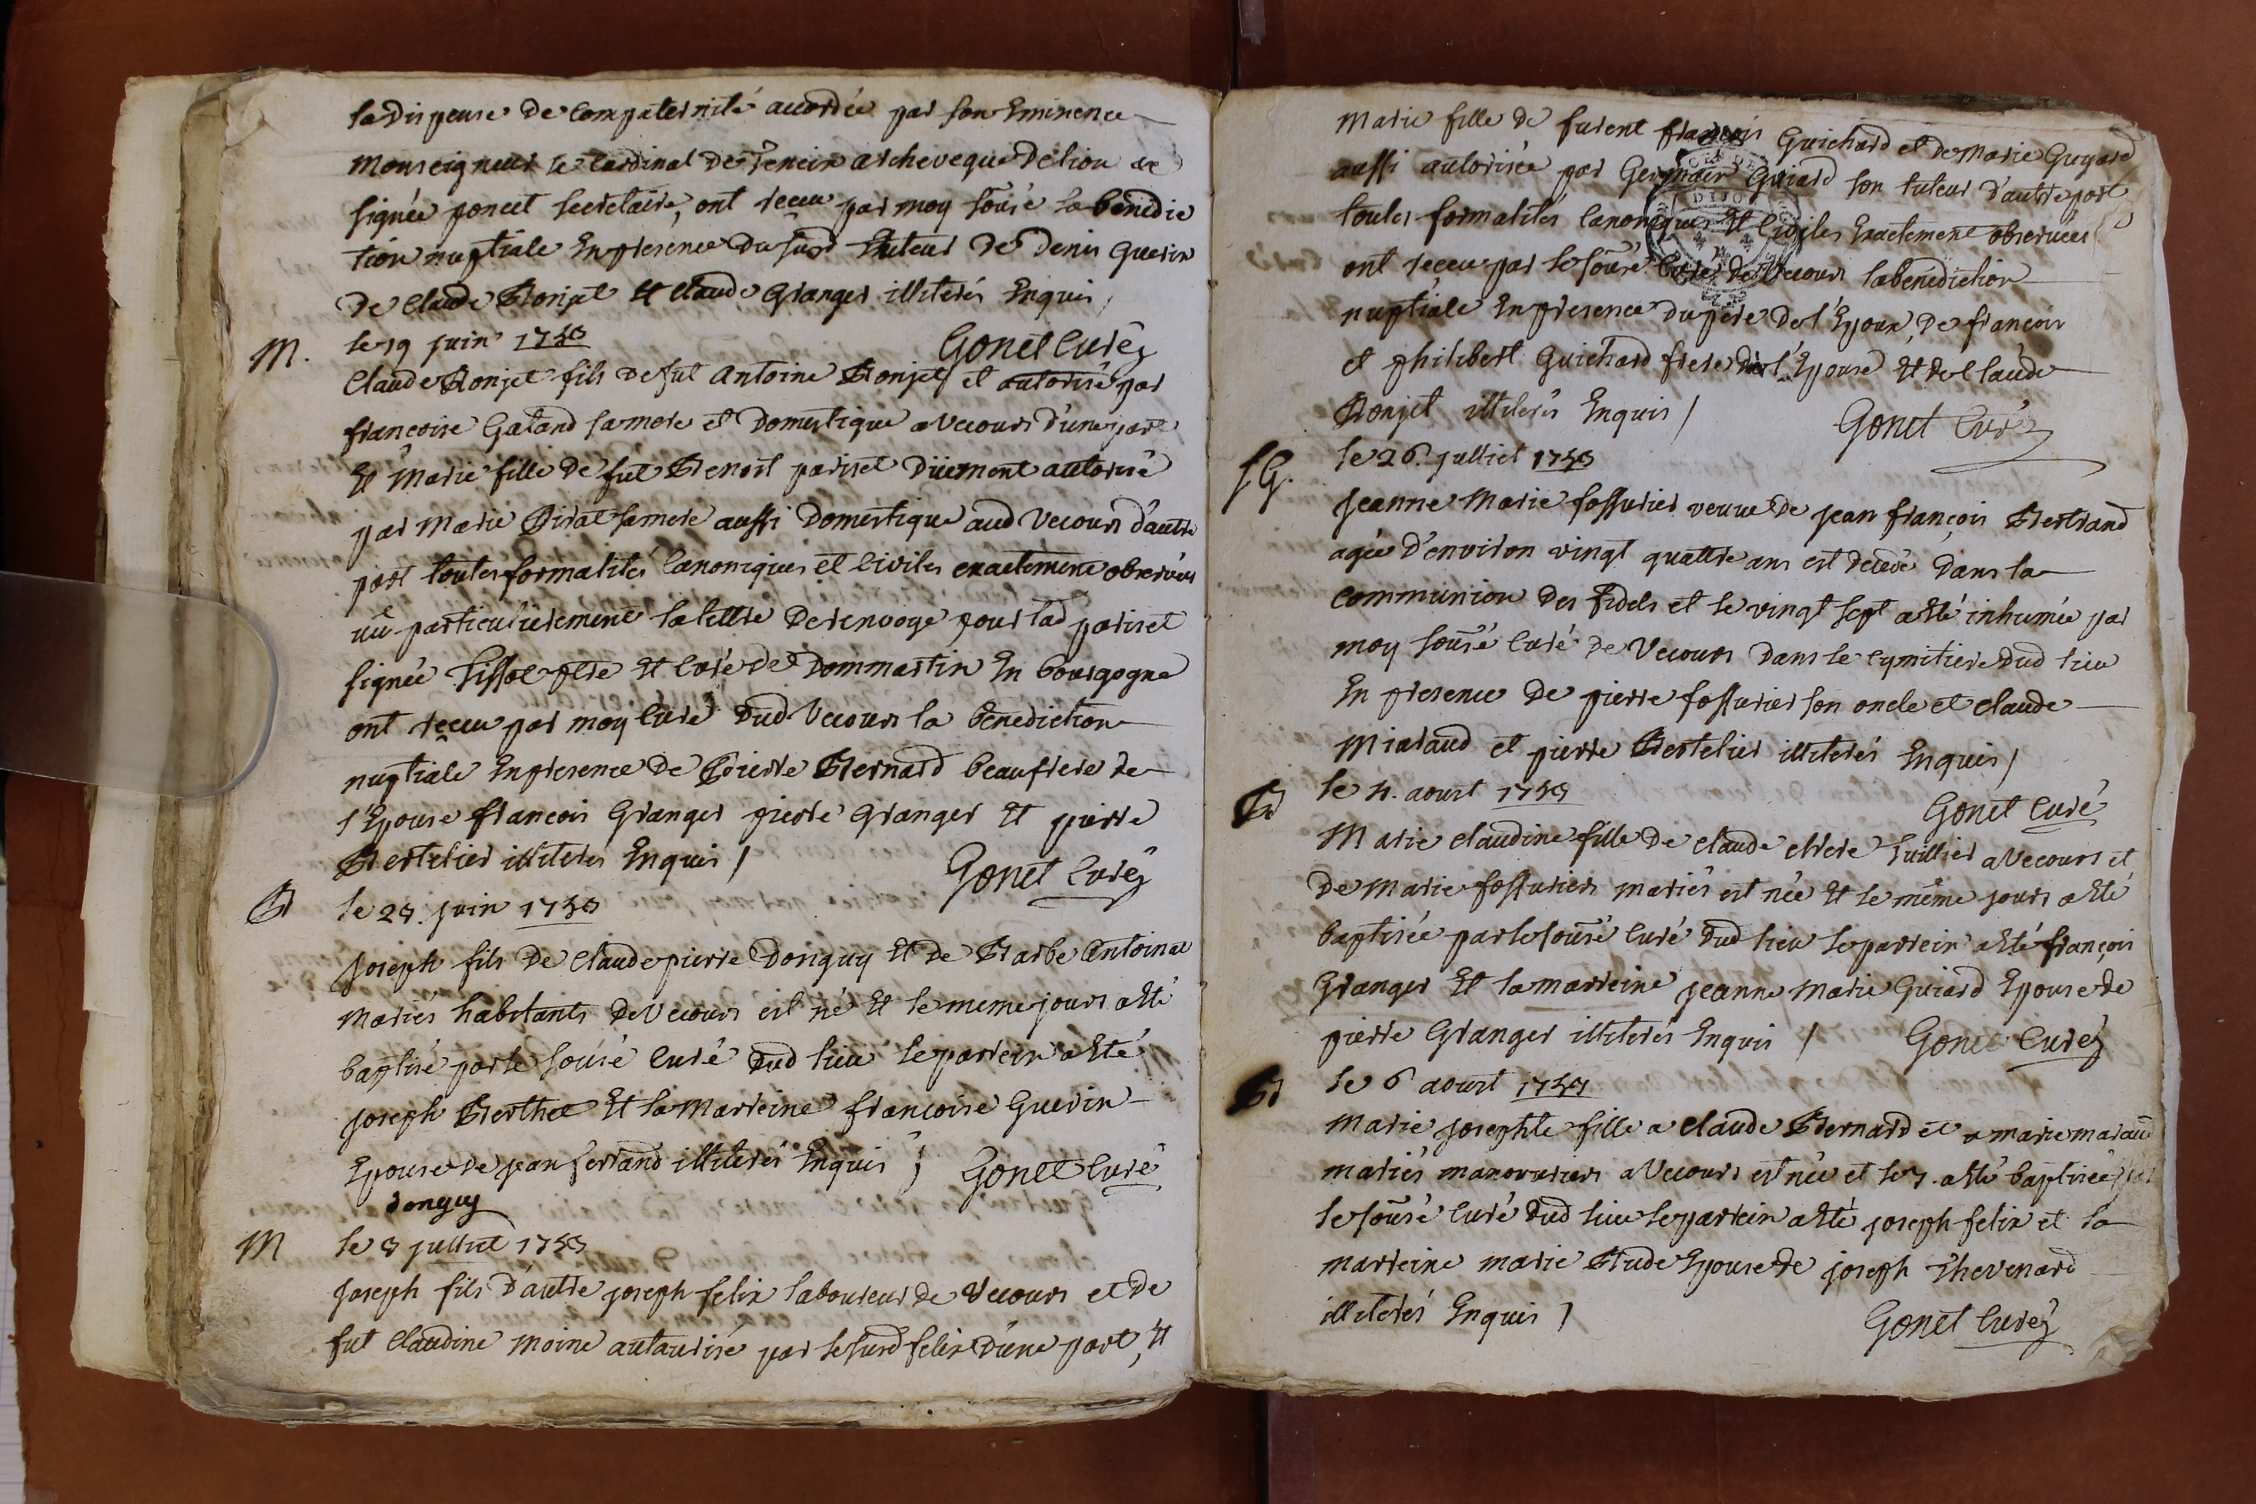 la dispense de compaternité accordée par son Eminence
Monseigneur le cardinal de Tencin archeveque de lion et
signée poncet secretaire, ont receu par moy sousé la benedic
tion nuptiale En presence du susd tuteur de denis Guerin
de Claude Bonjet Et Claude Granger illiterés Enquis /
M. le 19 juin Gonet Curé
Claude Bonjet fils de fut Antoine Bonjet et autorisé par
françoise Galand sa mere et Domestique a Vecours d'une part
Et Marie fille de fut Benoit pariset Düement autorisé
par Marie Birat sa mere aussi Domestique aud Vecours d'autre
part toutes formalités Canoniques et Civiles exactement observées
vû particulierement la lettre de renvoye pour lad pariset
signée Tissot ptre Et Curé de Dommartin En bourgogne
ont receu par moy Curé dud Vecours la benediction
nuptiale En presence de Pierre Bernard beaufrere de
l'Epouse françois Granger pierre Granger Et pierre
Bertelier illiterés Enquis / Gonet Curé
B le 28. juin
Joseph fils de Claude pierre Donguy Et de Barbe Antoinat
mariés habitants de Vecours est né Et le meme jours a Eté
baptisé par le sousé Curé dud lieu le parrein a Eté
joseph Berthet Et la Marreine françoise Guerin
Epouse de jean ferrand illiterés Enquis / Gonet Curé
donguy
M le 8 julliet
joseph fils d'autre joseph felix laboureur de Vecours et de
fut Claudine Moine autaurisé par le susd felix d'une part, Et
Marie fille de furent françois Guichard et de Marie Guyard
aussi autorisée par Germain Guiard son tuteur d'autre part
toutes formalités Canoniques Et Civiles Exactement observées
ont receu par le sousé Curé de Vecours la benediction
nuptiale En presence du pere de l'Epoux, de françois
et philibert Guichard frere de l'Epouse Et de Claude
Bonjet illiterés Enquis / Gonet Curé
SG. le 26. julliet
jeanne Marie fossurier veuve de jean françois Bertrand
agée d'environ vingt quattre ans est decédé dans la
communion des fidels et le vingt sept a Eté inhumée par
moy sousé Curé de Vecours dans le cymitiere dud lieu
En presence de pierre fossurier son oncle et Claude
Miraud et pierre Bertelier illiterés Enquis /
B le 4. aoust Gonet Curé
Marie Claudine fille de Claude huillier a Vecours et
de Marie fossuriers mariés est née Et le même jours a Eté
baptisée par le sousé Curé dud lieu le parrein a Eté françois
Granger Et la marreine jeanne Marie Guiard Epouse de
pierre Granger illiterés Enquis / Gonet Curé
B le 6 aoust
Marie josephte fille a Claude Bernard et a marie maraud
mariés manouvriers a Vecours est née et le 7. a Eté baptisée par
le sousé Curé dud lieu le parrein a Eté joseph felix et la
marreine marie Epouse de joseph Thevenard
illiterés Enquis / Gonet Curé